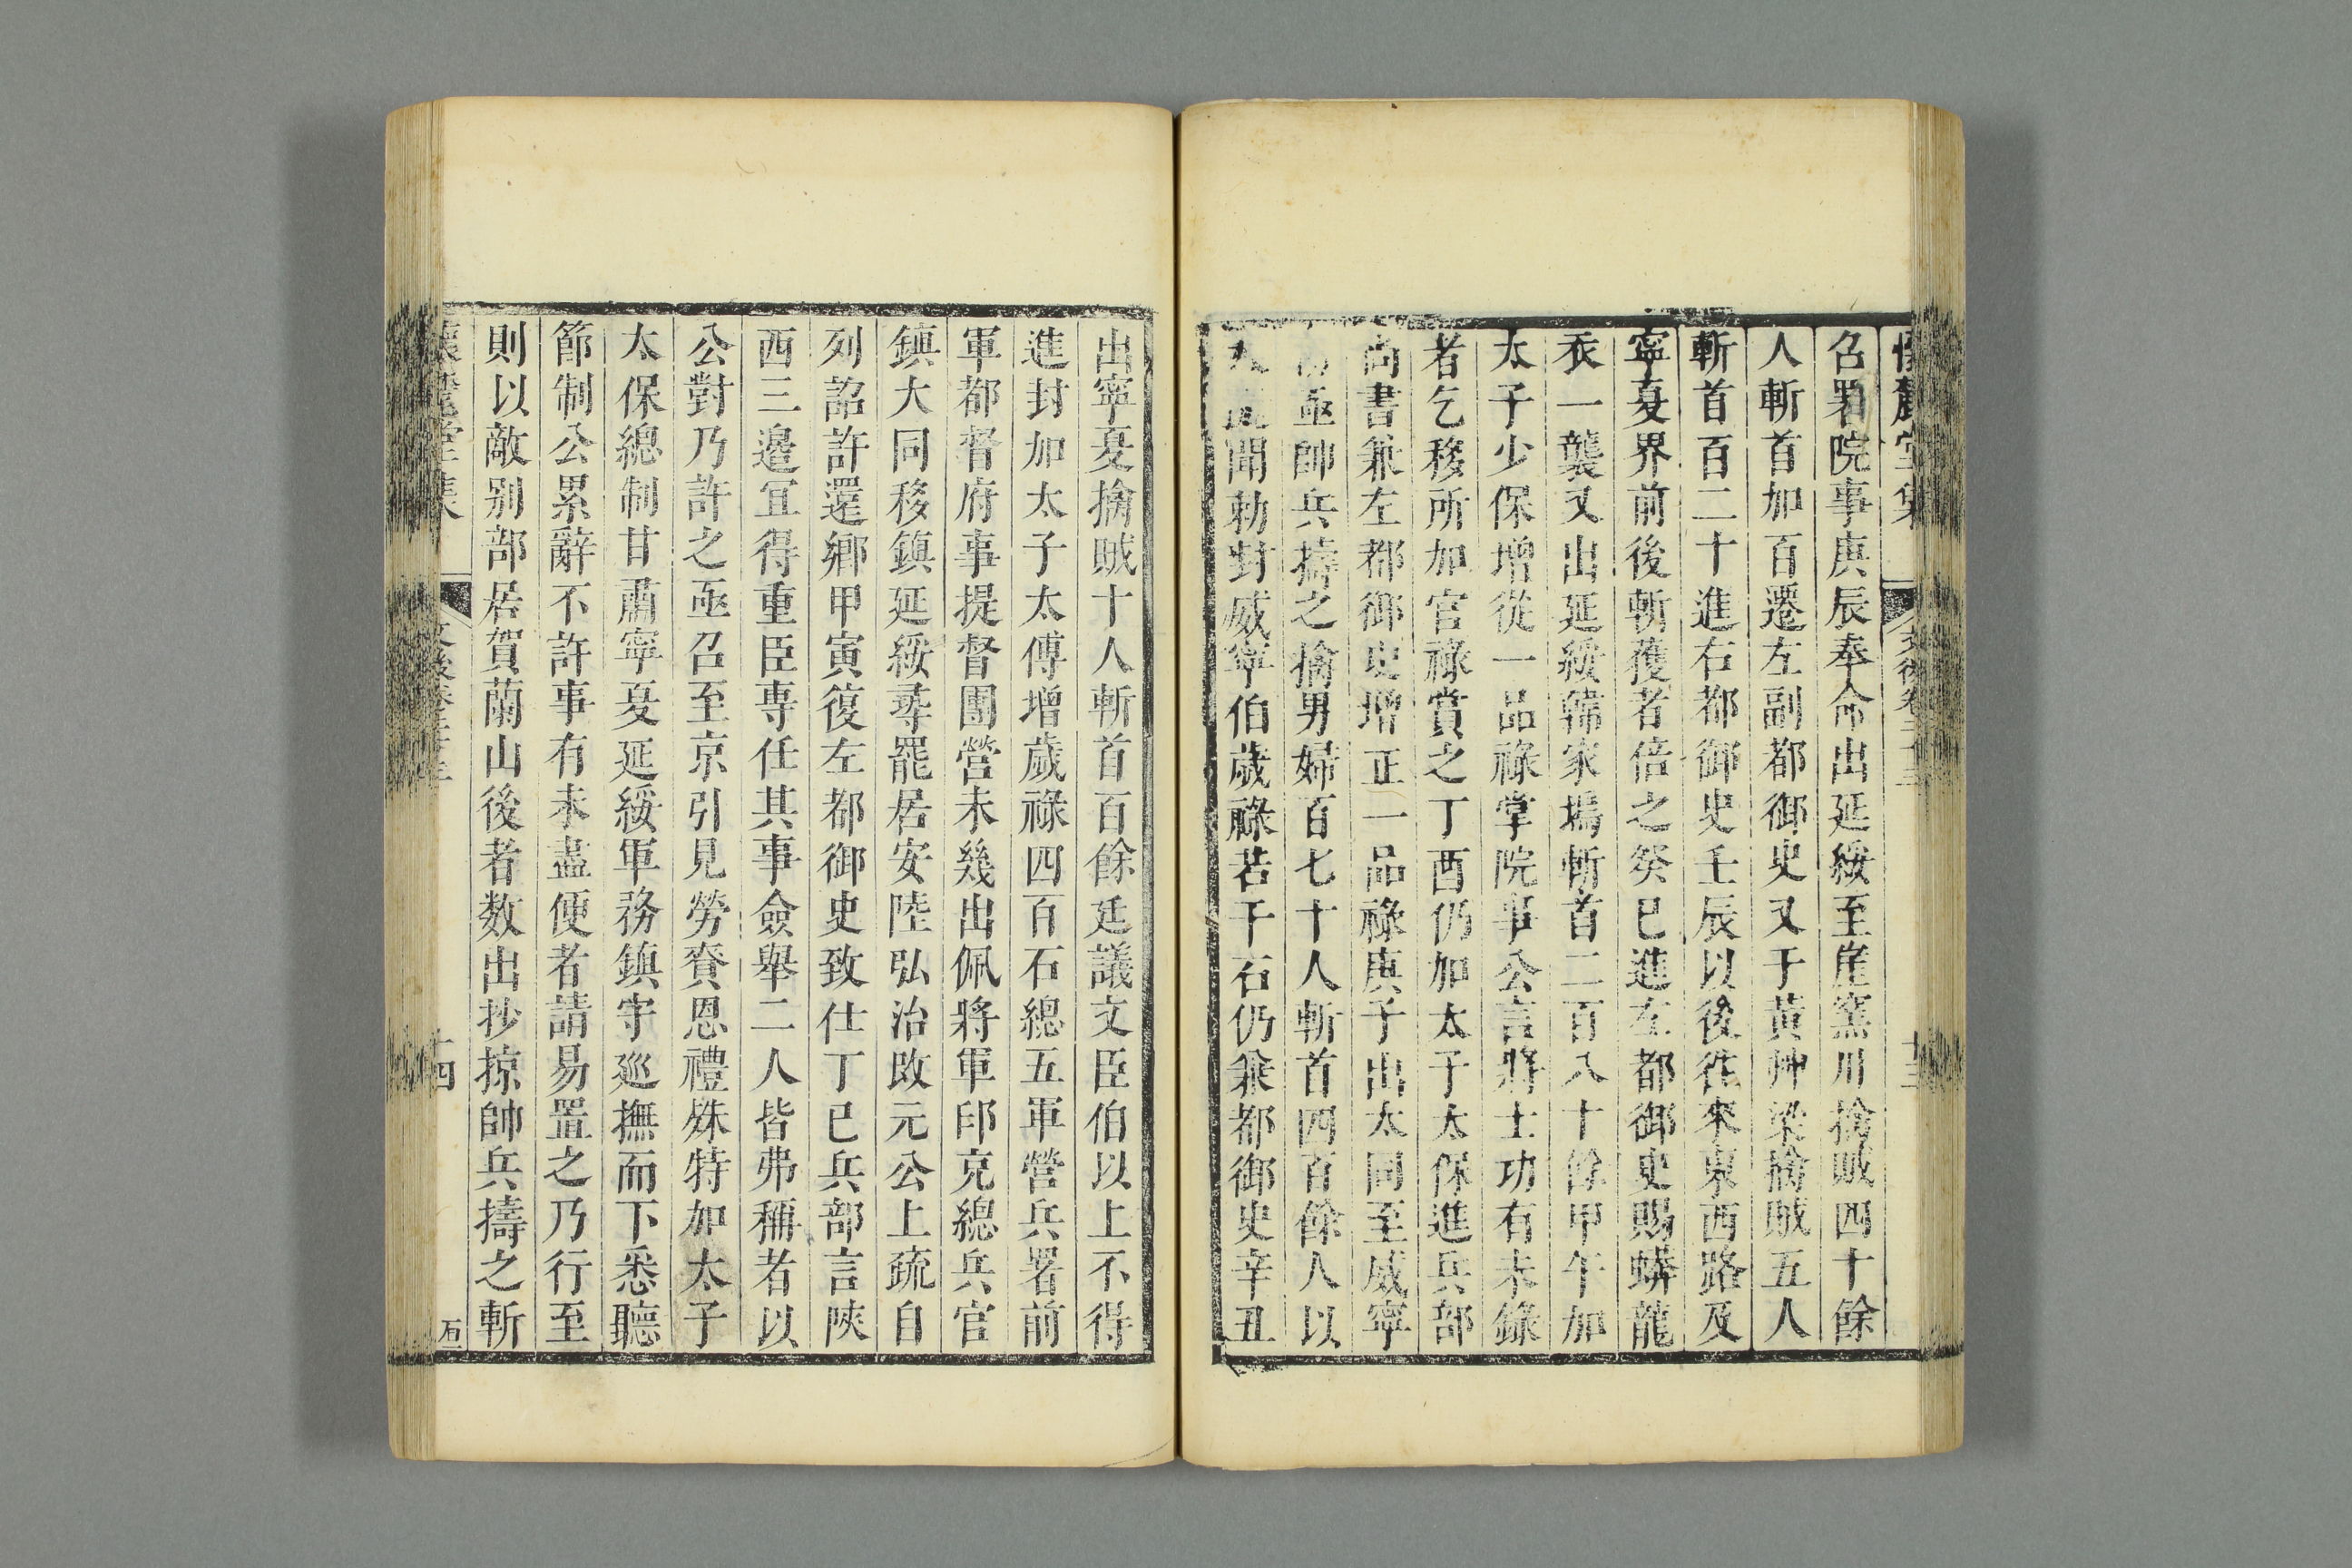 召署院事庚辰奉命出延綏至崖窯川擒賊四十餘
人斬首加百遷左副都御史又于黃艸梁擒賊五人
斬首百二十進右都御史壬辰以後往來東西路及
寧夏界前後斬獲者倍之癸巳進左都御史賜蟒龍
衣一襲又出延綏韓家塢斬首二百八十餘甲午加
太子少保增從一品祿掌院事公言將士功有未錄
者乞移所加官祿賞之丁酉仍加太子太保進兵部
尚書兼左都御史增正一品祿庚子出太同至威寧
亟帥兵擣之擒男婦百七十人斬首四百餘人以
聞勅封威寧伯歲祿若干石仍兼都御史辛丑
出寧夏擒賊十人斬首百餘廷議文臣伯以上不得
進封加太子太傅增歲祿四百石總五軍營兵署前
軍都督府事提督團營未幾出佩將軍印充總兵官
鎮大同移鎮延綏尋罷居安陸弘治改元公上疏自
列詔許還鄉甲寅復左都御史致仕丁巳兵部言陝
西三邊宜得重臣專任其事僉舉二人皆弗稱者以
公對乃許之亟召至京引見勞賚恩禮殊特加太子
太保總制甘肅寧夏延綏軍務鎮守巡撫而下悉聽
節制公累辭不許事有未盡便者請易置之乃行至
則以敵别部居賀蘭山後者数出抄掠帥兵擣之斬
十四